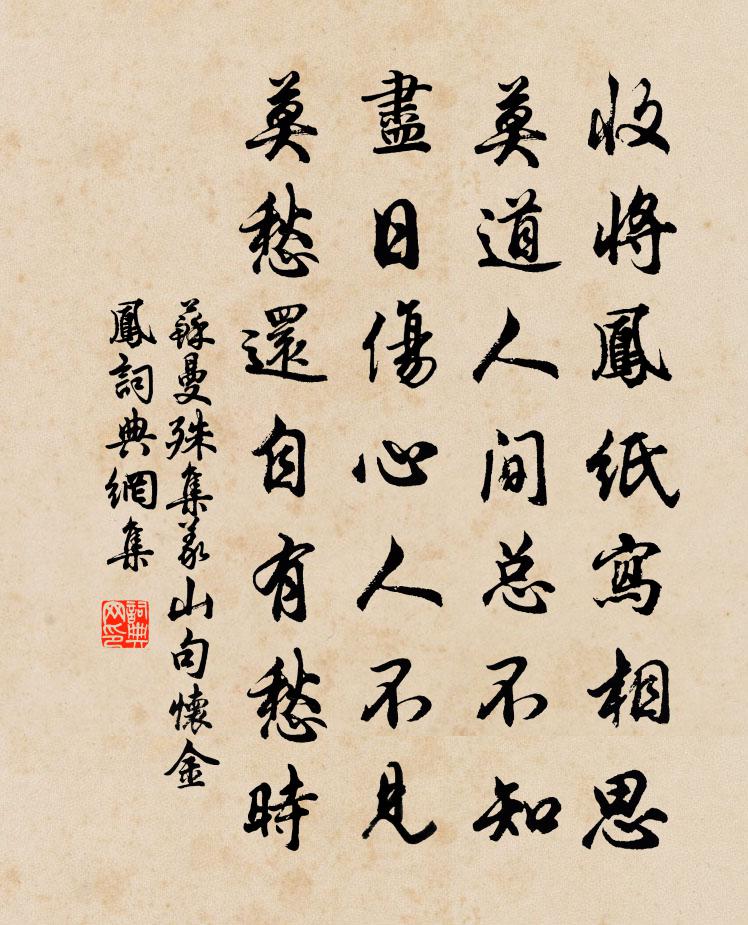 收將鳳紙寫相思
莫道人間总不知
盡日傷心人不見
莫愁還自有愁時
蘇曼殊集義山句懷金
鳳詞典網集
詞典
网印